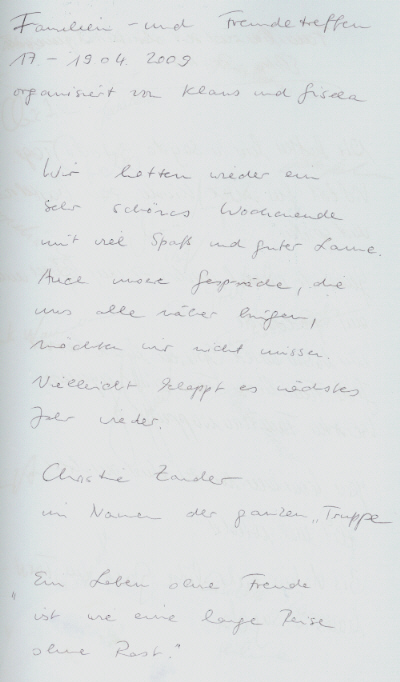 Familien - und Freundetreffen
17. - 19.04. 2009
organisiert von Klaus und Gisela
Wir hatten wieder ein
sehr schönes Wochenende
mit viel Spaß und guter Laune.
Auch unsere Gespräche, die
uns alle näher bringen,
möchten wir nicht missen.
Vielleicht klappt es nächstes
Jahr wieder.
Christie Zander
im Namen der ganzen „Truppe
„Ein Leben ohne Freude
ist wie eine lange Reise
ohne Rast."